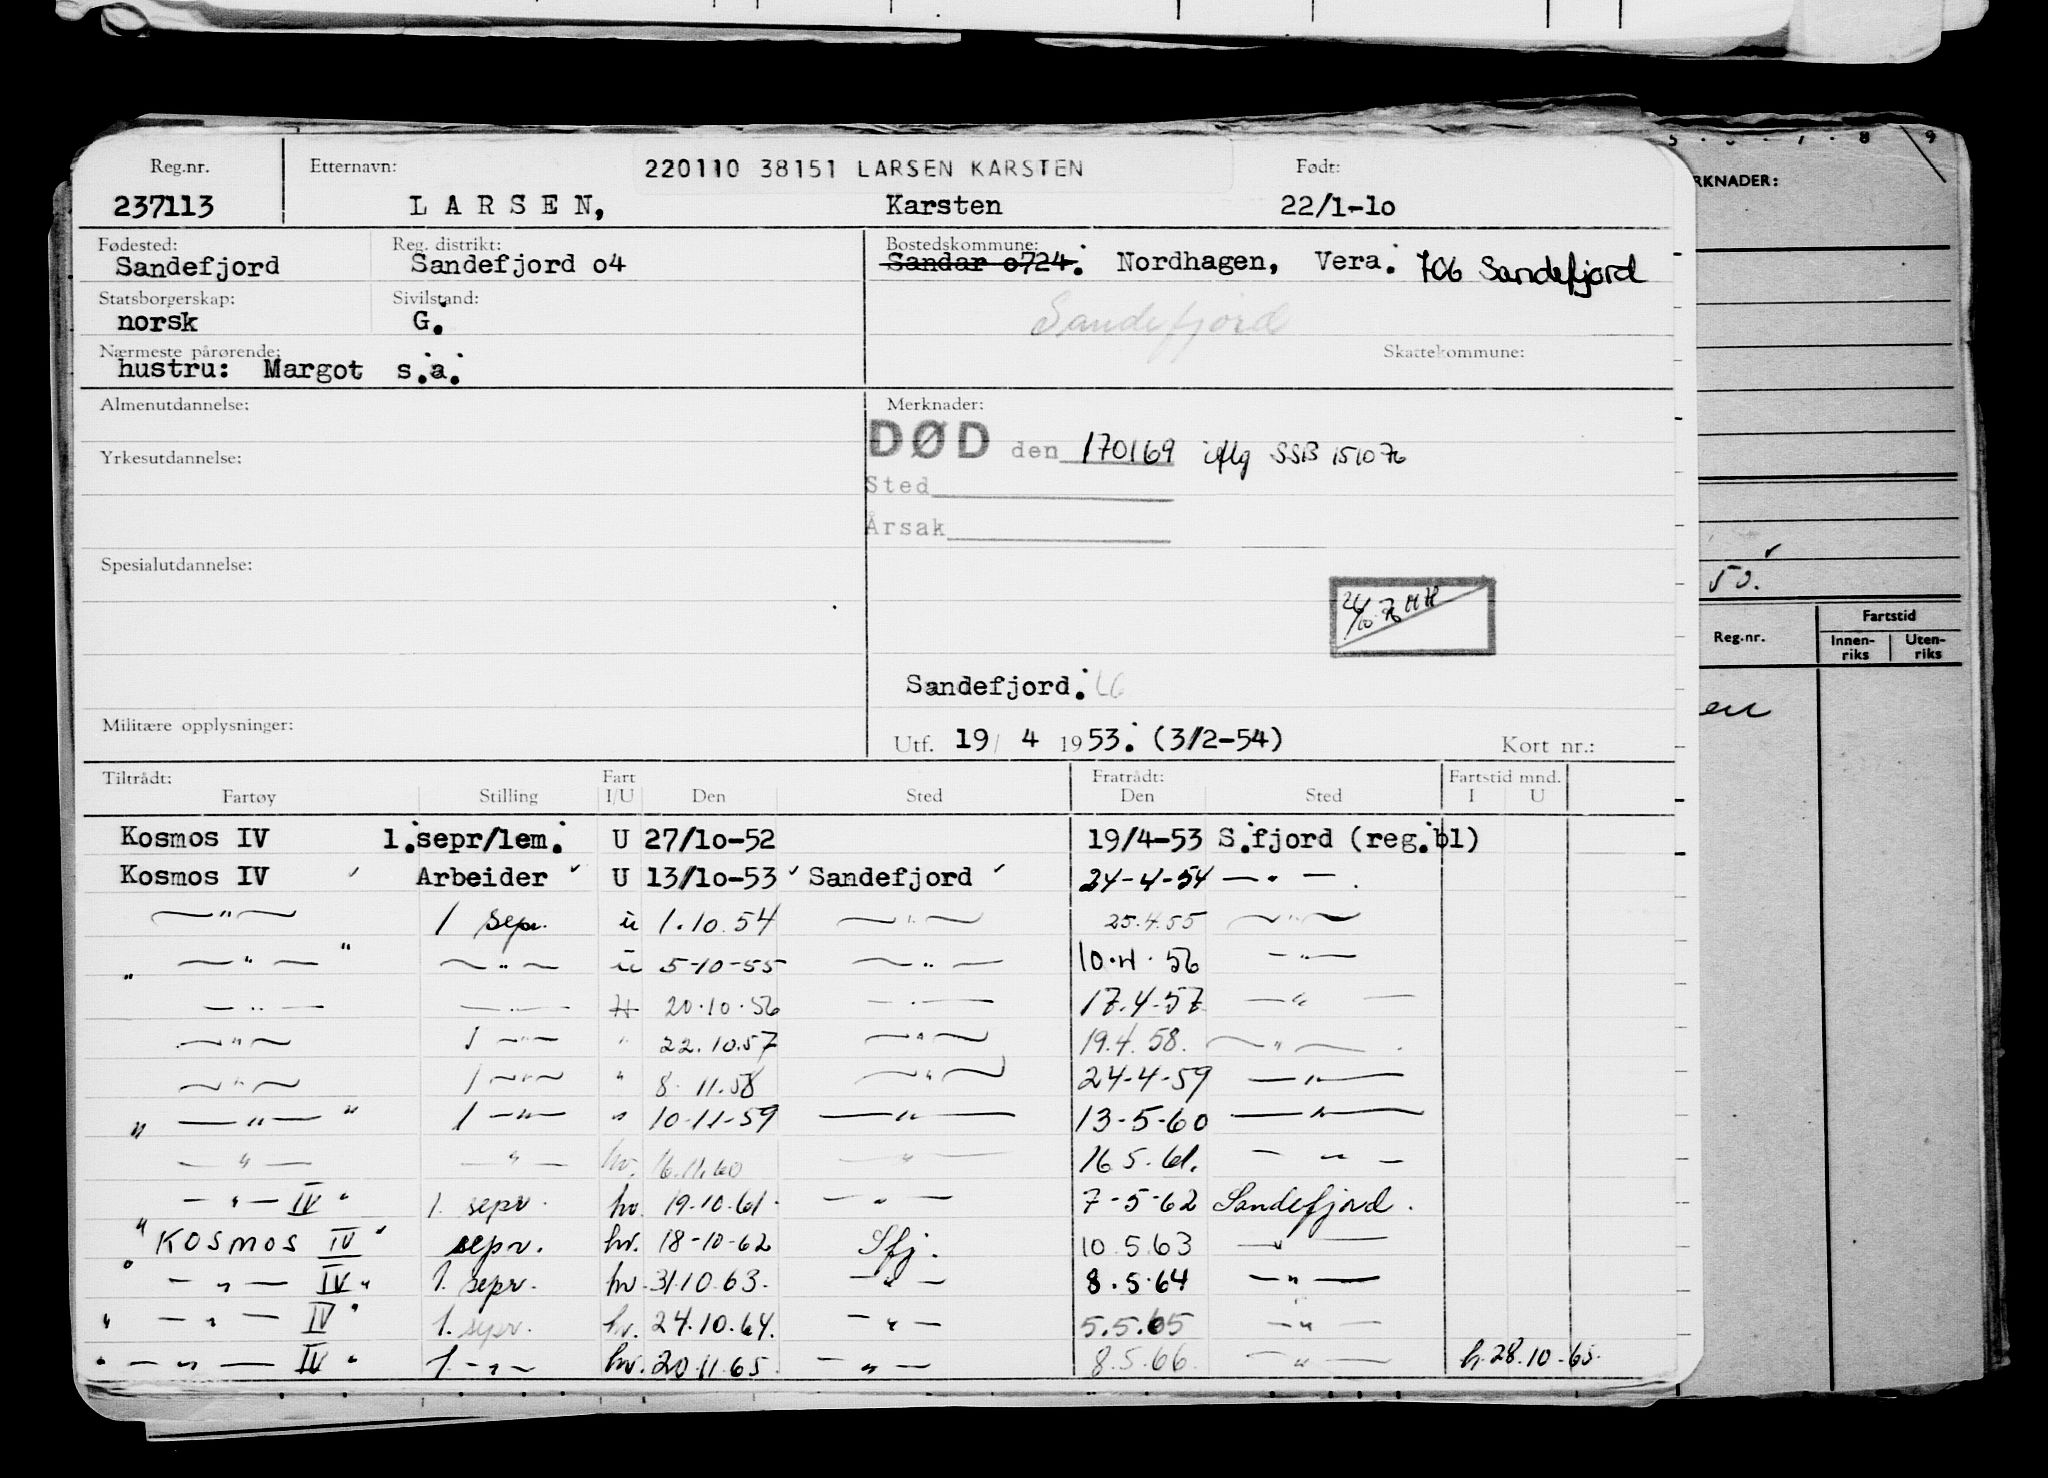 Reg.nr. Etternavn: 220110 38151 LARSEN KARSTEN Født:
237113 LARSEN, Karsten 22/1-1o
Fødested: Reg. distrikt: Bostedskommune:
Sandefjord Sandefjord o4 Sandar o724. Nordhagen, Vera. 706 Sandefjord
Statsborgerskap: Sivilstand:
norsk G. Sandefjord
Nærmeste pårørende: Skattekommune:
hustru: Margot s.a.
Almenutdannelse: Merknader:
DØD den 170169 iflg SSB 151076
Yrkesutdannelse:
Sted
Årsak
Spesialutdannelse:
26/10-76 HH
Sandefjord.
Militære opplysninger: Utf. 19/ 4 1953. (3/2-54) Kort nr.:
Tiltrådt: Fart Fratrådt: Fartstid mnd.
Fartøy Stilling I/U Den Sted Den Sted I U
Kosmos IV 1.sepr/lem. U 27/1o-52 19/4-53 S.fjord (reg.bl)
Kosmos IV Arbeider U 13/1o-53 Sandefjord 24-4-54 — " —
— " — 1 sepr. u 1.10.54 — " — 25.4.55 — " —
" — " — " — " — u 5-10-55 — " — 10.4.56 — " —
— " — — " — H 20.10.56 — " — 17.4.57 — " —
— " — 1 — " — " 22.10.57 — " — 19.4.58. — " —
— " — 1 — " — " 8.11.58 — " — 24-4-59 — " —
" — " — " 1 — " — " 10-11-59 — " — 13-5-60 — " —
— " — — " — hv. 16.11.60 — " — 16.5.61. — " —
— " — IV " 1. sepr. hv 19.10.61. — " — 7-5-62 Sandefjord.
" KOSMOS IV " sepr. hv. 18-10-62 Sfj. 10.5.63 — " —
— " — IV " 1. sepr. hv. 31.10.63. — " — 8.5.64 — " —
" — " — IV " 1. sepr. hv. 24.10.64. — " — 5.5.65 — " —
" — " — IV " 1. — " — hv. 20.11.65. — " — 8.5.66. — " — h. 28.10.65.
RKNADER:
50.
Fartstid
Reg.nr. Innen-riks Uten-riks
en